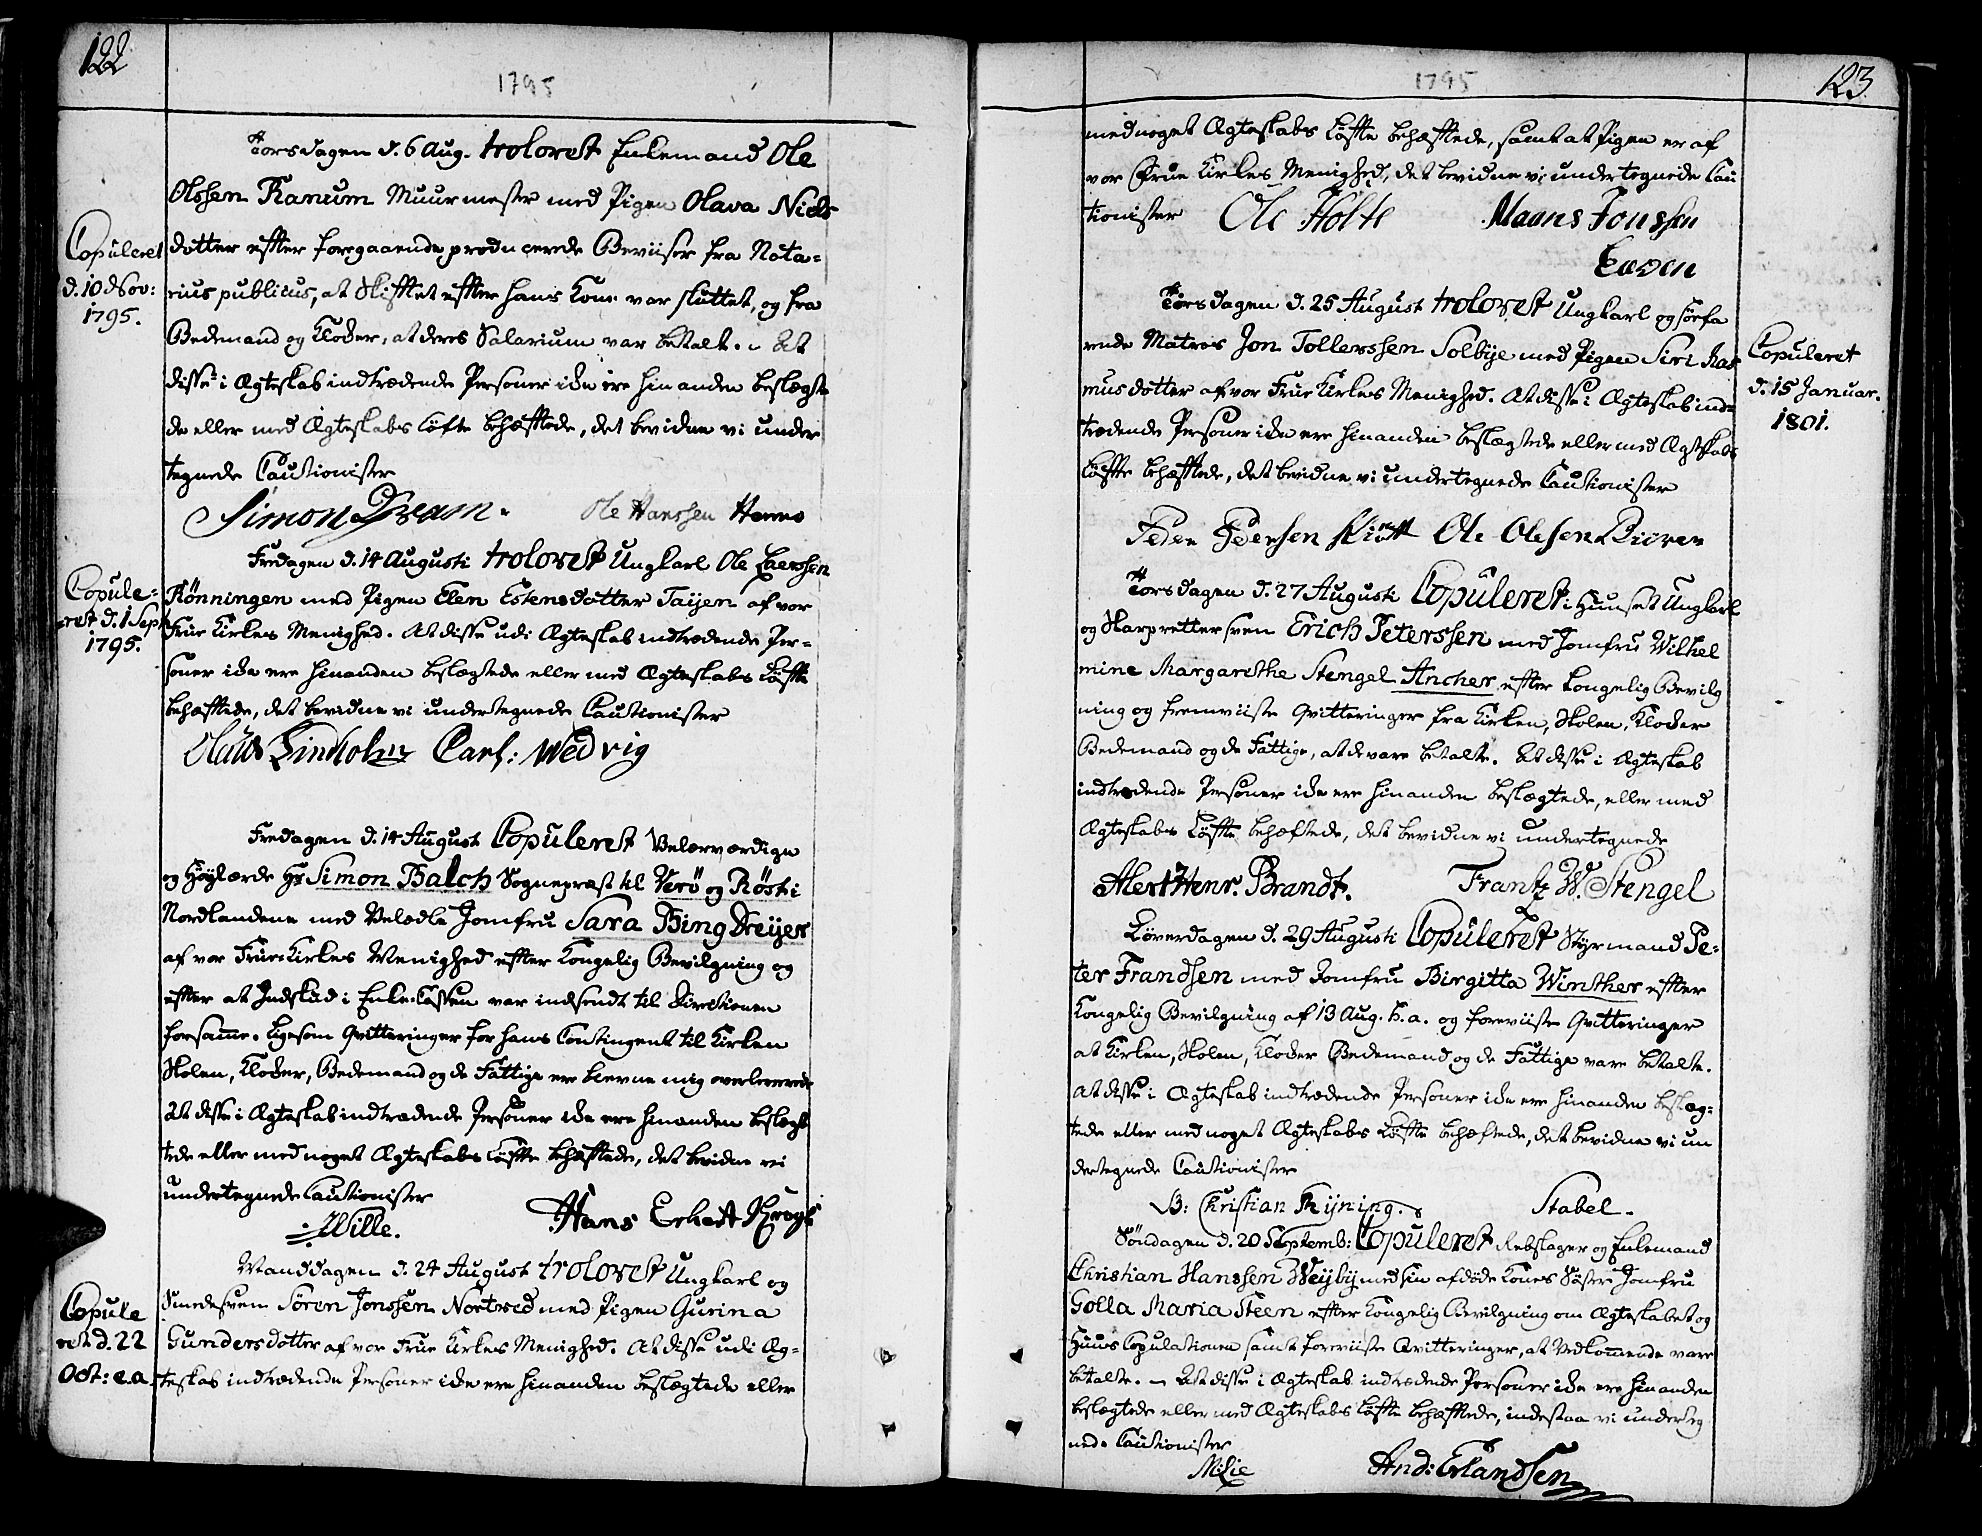 122
1795
Torsdagen d. 6 Aug. troloret Enkemand Ole
Olssen Ranum Muurmester med Pigen Olava Niels
dotter efter foregaaende producerede Beviiser fra Nota-
rius publicus, at Skifftet efter hans Kone var sluttet, og fra
Bedemand og Klocker, at deres Salarium var betalt. At
disse i Ægteskab indtrædende Personer icke ere hinanden beslægte
de eller med Ægteskabs Løfte behæfftede, det bevidne vi under
tegnede Cautionister
Copuleret
d. 10 Nov:
1795.
Simon Bram. Ole Hanssen
Fredagen d. 14 Augusti troloret Ungkarl Ole Laerssen
Rønningen med Pigen Elen Estensdotter Taijen af vor
Frue Kirkes Menighed. At disse udi Ægteskab indtrædende Per-
soner icke ere hinanden beslægtede eller med Ægteskabs Løffte
behæfftede, det bevidne vi undertegnede Cautionister
Copule-
ret d. 1 Sept
1795.
Olaus Lindholm Carl: Wedvig
Fredagen d. 14 August Copuleret Velærværdige
og Høylærde Hr Simon Balch Sognepræst til Verö og Röst i
Nordlandene med Velædle Jomfru Sara Bing Dreyer
af vor Frue Kirkes Menighed efter Kongelig Bevilgning og
efter at Indskud i Enke-Cassen var indsendt til Directionen
for samme. Ligesom Qvitteringer for hans Contingent til Kirken
Skolen, Klocker, Bedemand og de Fattige ere blevne mig overleverede
At disse i Ægteskab indtrædende Personer icke ere hinanden beslægt
tede eller med noget Ægteskabs Løffte behæftede, det bevidne vi
undertegnede Cautionister
Wille. Hans Erhart Krogh
Manddagen d. 24 August troloret Ungkarl og
Smedesvem Sören Jonssen Nortved med Pigen Gurina
Gundersdotter af vor Frue Kirkes Menighed. At disse udi Æg-
teskab indtrædende Personer icke ere hinanden beslægtede eller
Copule
ret d. 22
Oct: e.a.
123.
1795
med noget Ægteskabs Løffte behæfftede, samt at Pigen er af
vor Frue Kirkes Menighed, det bevidne vi undertegnede Cau
tionister Ole Holte Maans Jonssen
Torsdagen d. 25 August troloret Ungkarl og søefa
rende Matros Jon Tollerssen Solbye med Pigen Siri Ras
musdotter af vor Frue Kirkes Menighed. At disse i Ægteskab ind-
trædende Personer icke ere hinanden beslægtede eller med Ægteskabs
Løffte behæfftede, det bevidne vi undertegnede Cautionister
Copuleret
d. 15 Januar.
1801.
Peder Pedersen Ole Olesen
Torsdagen d. 27 Augusti Copuleret i Huuset Ungkarl
og Skarprettersven Erich Peterssen med Jomfru Wilhel
mine Margarethe Stengel Ancher efter Kongelig Bevilg
ning og fremviiste Qvitteringer fra Kirken, Skolen, Klocker
Bedemand og de Fattige, at de vare betalte. At disse i Ægteskab
indtrædende Personer icke ere hinanden beslægtede, eller med
Ægteskabs Løffte behæftede, det bevidne vi undertegnede
Alert Henr. Brandt. Frantz W. Stengel
Løverdagen d. 29 Augusti Copuleret Styrmand Pe-
ter Frandsen med Jomfru Birgitta Winther efter
Kongelig Bevilgning af 13 Aug. h.a. og foreviiste Qvitteringer
at Kirken, Skolen, Klocker Bedemand og de Fattige vare betalte.
At disse i Ægteskab indtrædende Personer icke ere hinanden beslæg-
tede eller med noget Ægteskabs Løffte behæftede, det bevidne vi un
dertegnede Cautionister
B: Christian Stabel.
Søndagen d. 20 Septemb: Copuleret Rebslager og Enkemand
Christian Hanssen Weyby med sin afdøde Kones Søster Jomfru
Golla Maria Steen efter Kongelig Bevilgning om Ægteskabet og
Huus Copulationen samt foreviiste Qvitteringer, at Vedkommende vare
betalte. At disse i Ægteskab indtrædende Personer icke ere hinanden
beslægtede eller med Ægteskabs Løffte behæfftede, indestaa vi underteg
nede Cautionister
And: Erlandsen